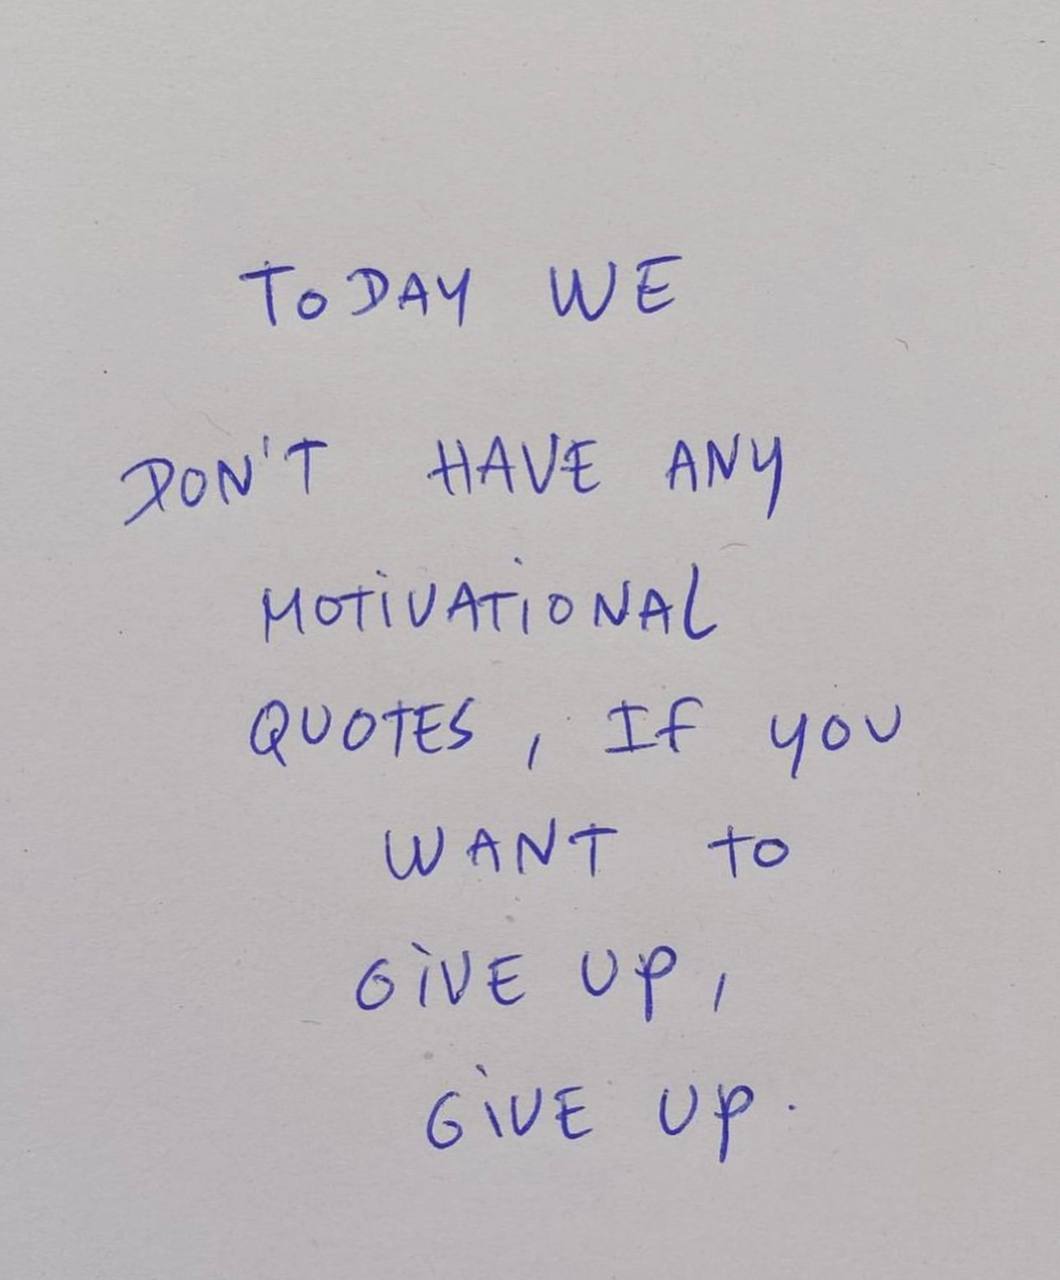 TODAY WE
DON'T HAVE ANY
MOTiVATiONAL
QUOTES, If you
WANT to
GiVE UP,
GiVE UP.